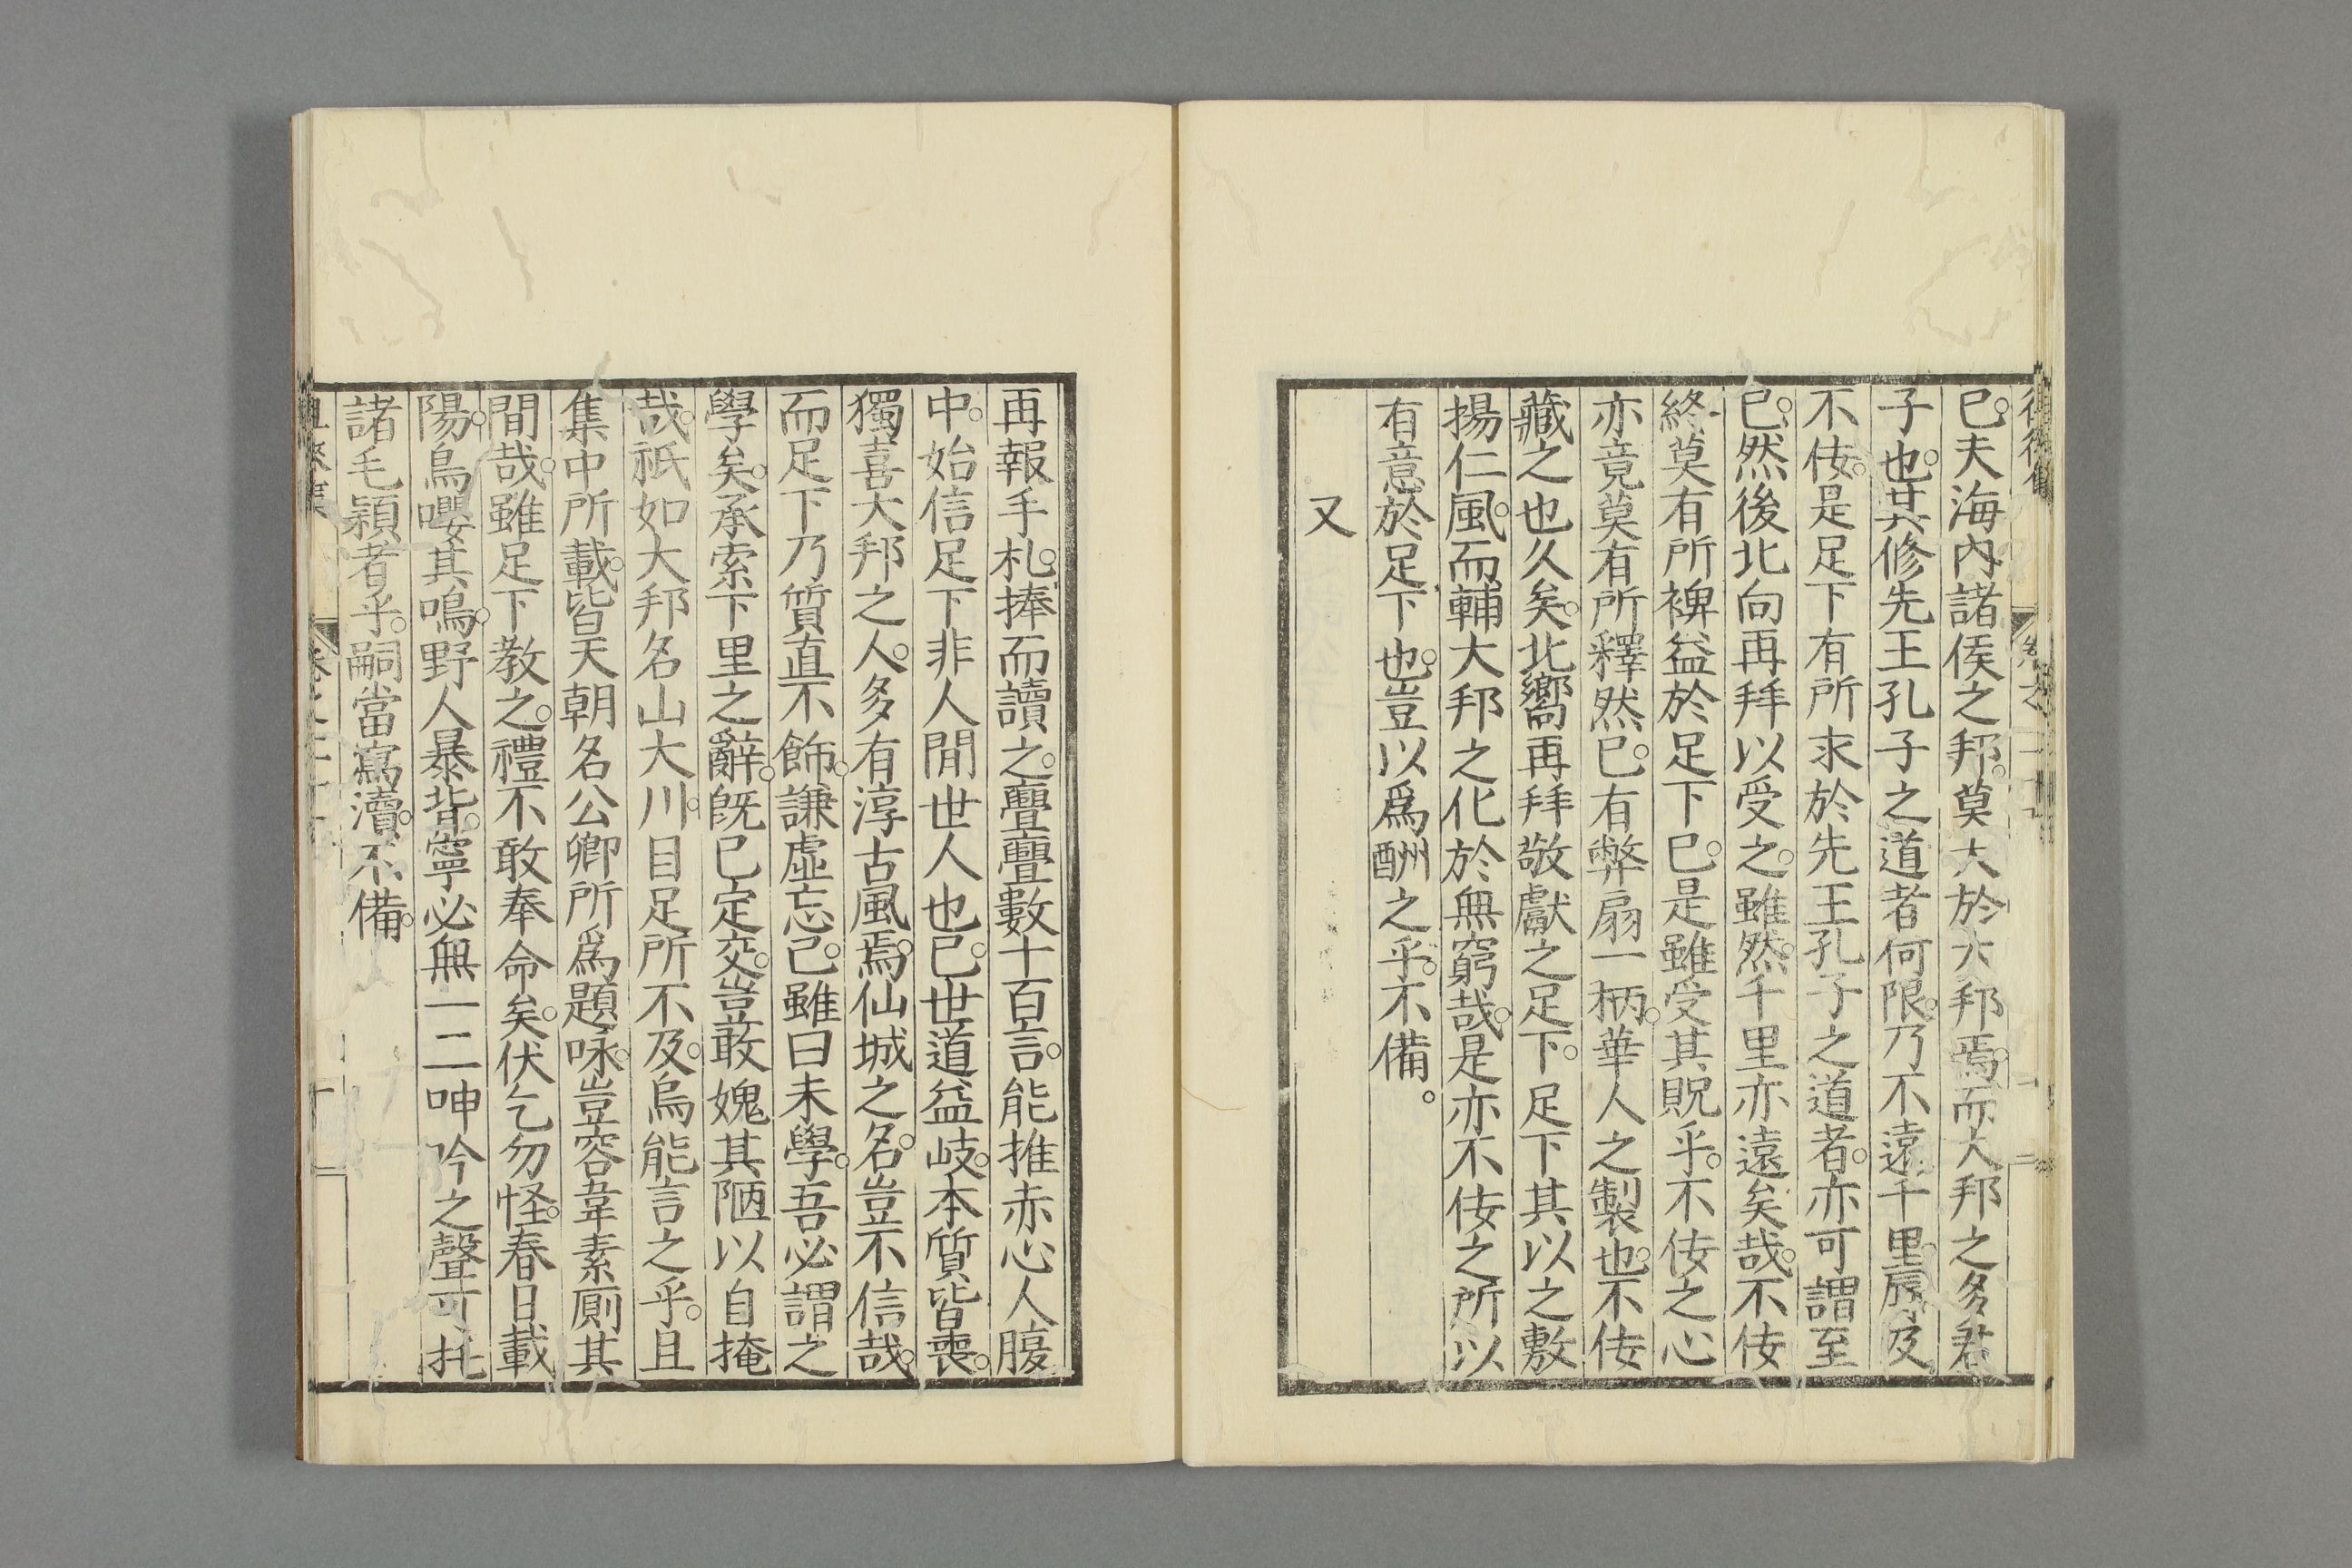 已。夫海內諸侯之邦。莫大於大邦焉。而大邦之多君
子也。其修先王孔子之道者何限。乃不遠千里。辱及
不佞。是足下有所求於先王孔子之道者。亦可謂至
已。然後北向再拜以受之。雖然。千里亦遠矣哉。不佞
終莫有所裨益於足下。已是雖受其貺乎。不佞之心
亦竟莫有所釋然已。有弊扇一柄。華人之製也。不佞
藏之也久矣。北嚮再拜敬獻之足下。足下其以之敷
揚仁風。而輔大邦之化於無窮哉。是亦不佞之所以
有意於足下也。豈以爲酬之乎。不備。
又
再報手札。捧而讀之。亹亹數十百言。能推赤心人腹
中。始信足下非人間世人也。已。世道益岐。本質皆喪。
獨喜大邦之人。多有淳古風焉。仙城之名。豈不信哉。
而足下乃質直不飾。謙虛忘己。雖曰未學。吾必謂之
學矣。承索下里之辭。既已定交。豈敢媿其陋以自掩
哉。祇如大邦名山大川。目足所不及。烏能言之乎。且
集中所載。皆天朝名公卿所爲題咏。豈容韋素廁其
間哉。雖足下教之。禮不敢奉命矣。伏乞勿怪。春日載
陽。鳥嚶其鳴。野人暴背。寧必無一二呻吟之聲可托
諸毛穎者乎。嗣當寫瀆。不備。